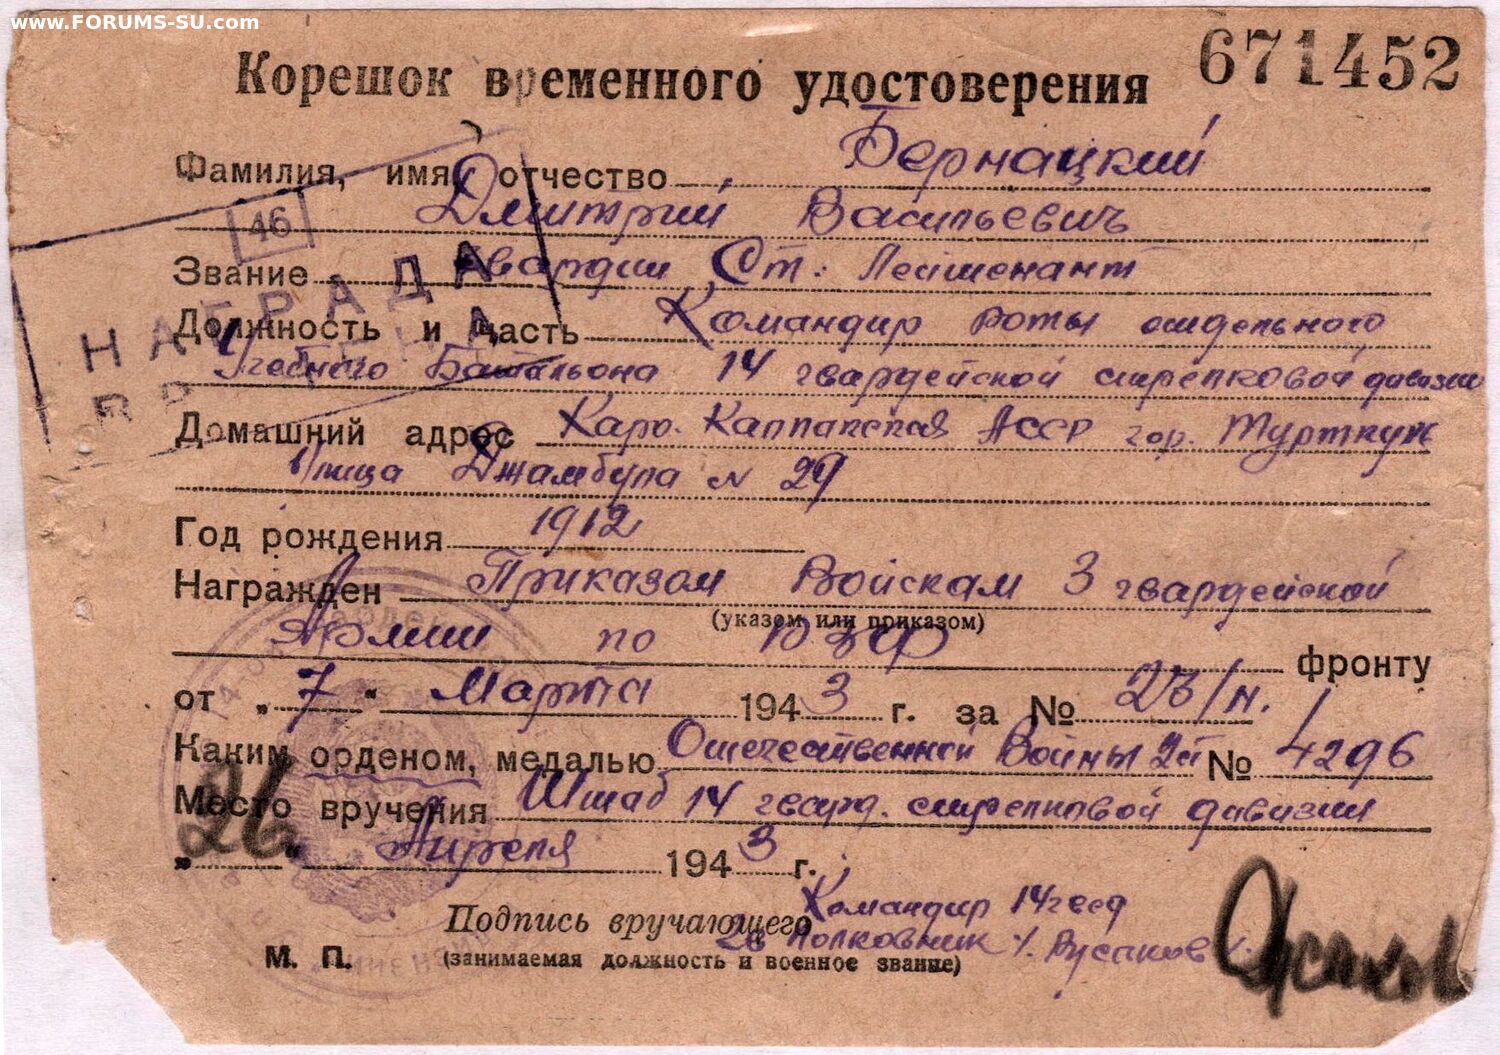 www.FORUMS-SU.com
671452
Корешок временного удостоверения
Фамилия, имя, отчество Бернацкий
Дмитрий Васильевич
46
Звание Гвардии Ст. Лейтенант
НАГРАДА
Должность и часть Командир роты отдельного
Учебного Батальона 14 гвардейской стрелковой дивизии
Домашний адрес Каро. Калпапская АССР гор. Турткуль
Улица Джамбула N 29
Год рождения 1912
Награжден Приказом Войскам 3 гвардейской
(указом или приказом)
Армии по ЮЗФ фронту
от „7“ Марта 1943 г. за № 23/н.
Каким орденом, медалью Отечественной Войны 2 ст № 4296
Место вручения Штаб 14 гвард. стрелковой дивизии
„26. Апреля 1943 г.
Подпись вручающего Командир 14 гвсд
М. П. (занимаемая должность и военное звание)
Гв Полковник /. Русаков /.
Русаков